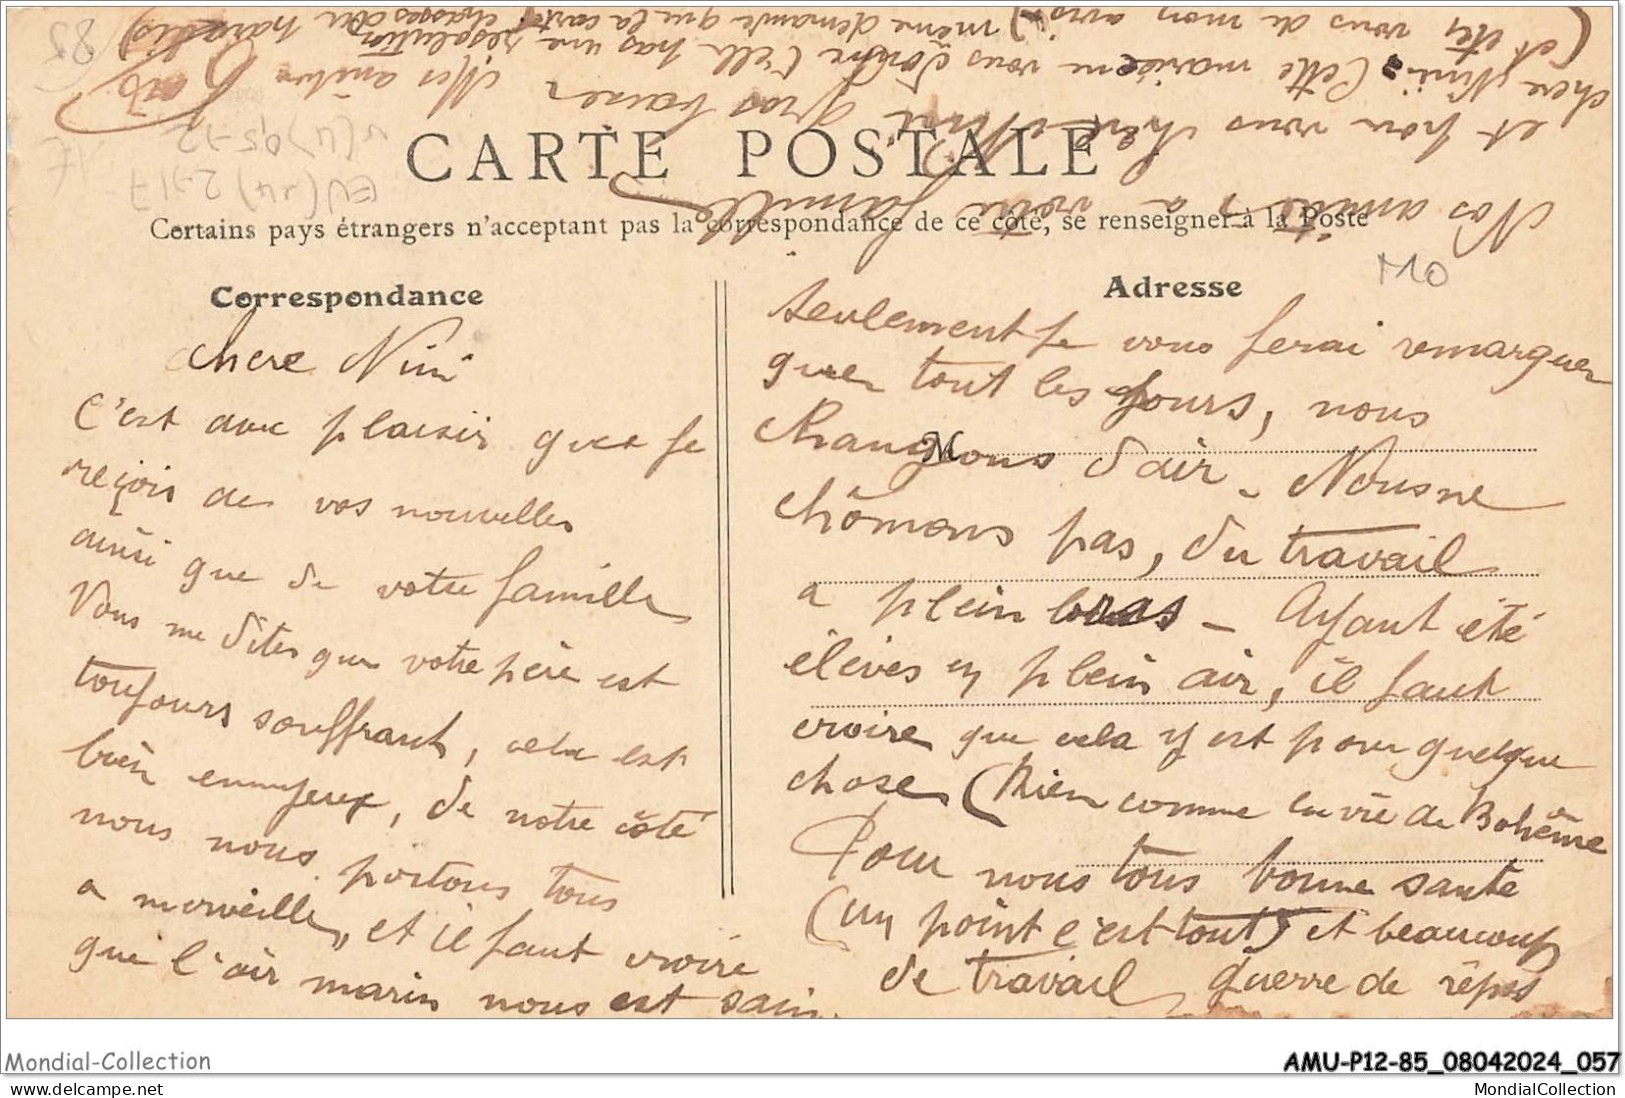 CARTE POSTALE
Certains pays étrangers n'acceptant pas la correspondance de ce côté, se renseigner à la Poste
Correspondance
chere Nini
C'est avec plaisir que je
reçois de vos nouvelles
ainsi que de votre famille
Vous me dites que votre père est
toujours souffrant, cela est
bien ennuyeux, de notre côté
nous nous portons tous
a merveille, et il faut croire
que l'air marin nous est sain.
Adresse
MO
seulement je vous ferai remarquer
que tout les jours, nous
changeons d'air - Nous ne
chômons pas, du travail
a plein bras - Ayant été
élevés en plein air, il faut
croire que cela y est pour quelque
chose (Rien comme la vie de Bohême
Pour nous tous bonne sante
(un point c'est tout) et beaucoup
de travail, guerre de repos
Nos amitiés a votre famille
et pour vous chère Nini gros baiser
chere Nini. Cette mariene vous donne t'elle pas une résolution
(et etes vous de mon avis) même demande que la carte
Mondial-Collection
AMU-P12-85_08042024_057
www.delcampe.net
MondialCollection